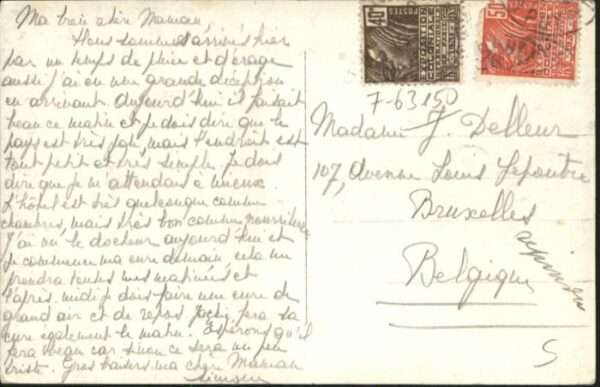 Ma bien chère Maman,
Nous sommes arrivés hier
par un temps de pluie et d'orage
aussi j'ai eu une grande déception
en arrivant. Aujourd'hui il faisait
beau ce matin et je dois dire que le
pays est très joli, mais l'endroit est
tout petit et très simple. Je dois
dire que je m'attendais à mieux.
L'hôtel est très quelconque comme
chambres, mais très bon comme nourriture
J'ai vu le docteur aujourd'hui et
je commence ma cure demain, cela me
prendra toutes mes matinées et
l'après-midi je dois faire une cure de
grand air et de repos. Jacky fera sa
cure également le matin. Espérons qu'il
fera beau car sinon ce sera un peu
triste. Gros baisers ma chère Maman
Simone
40c
50c
EXPOSITION
COLONIALE
INTERNATIONALE
7-63150
Madame J. Delleur
107, Avenue Louis Lepoutre
Bruxelles
Belgique
S